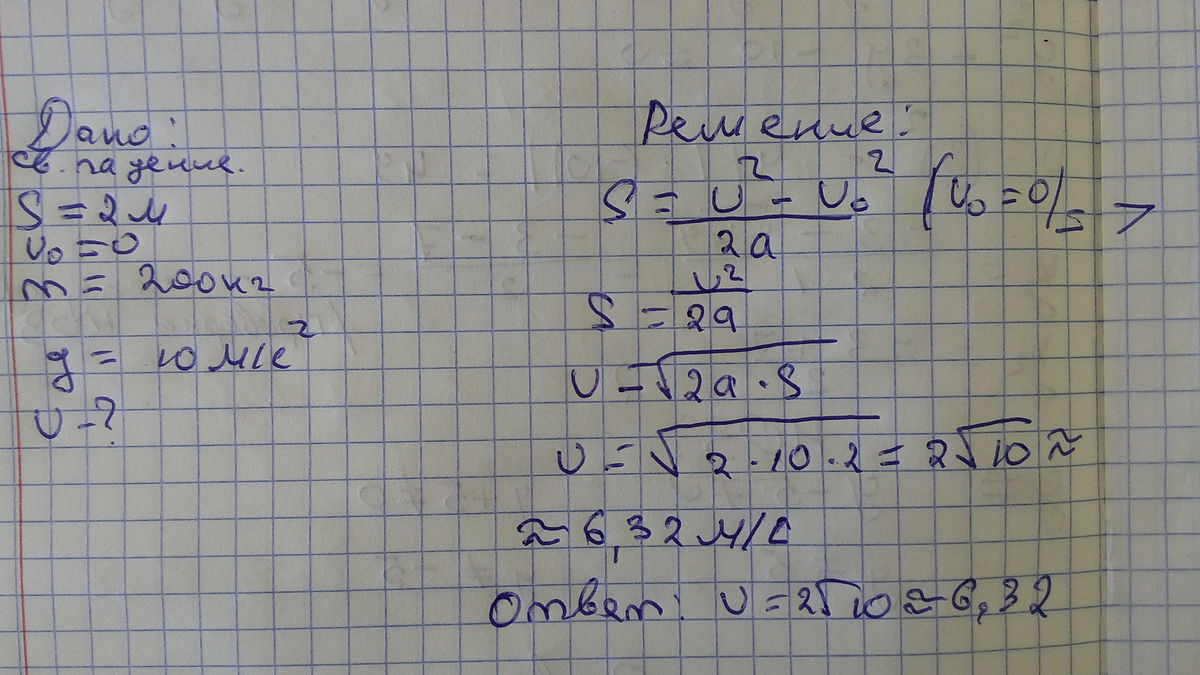 Дано:
св. падение.
S = 2 м
υ₀ = 0
m = 200 кг
g = 10 м/с²
υ - ?
Решение:
S = (υ² - υ₀²)/2a (υ₀ = 0) =>
S = υ²/2a
υ = √(2a · S)
υ = √(2 · 10 · 2) = 2√10 ≈
≈ 6,32 м/с
Ответ: υ = 2√10 ≈ 6,32